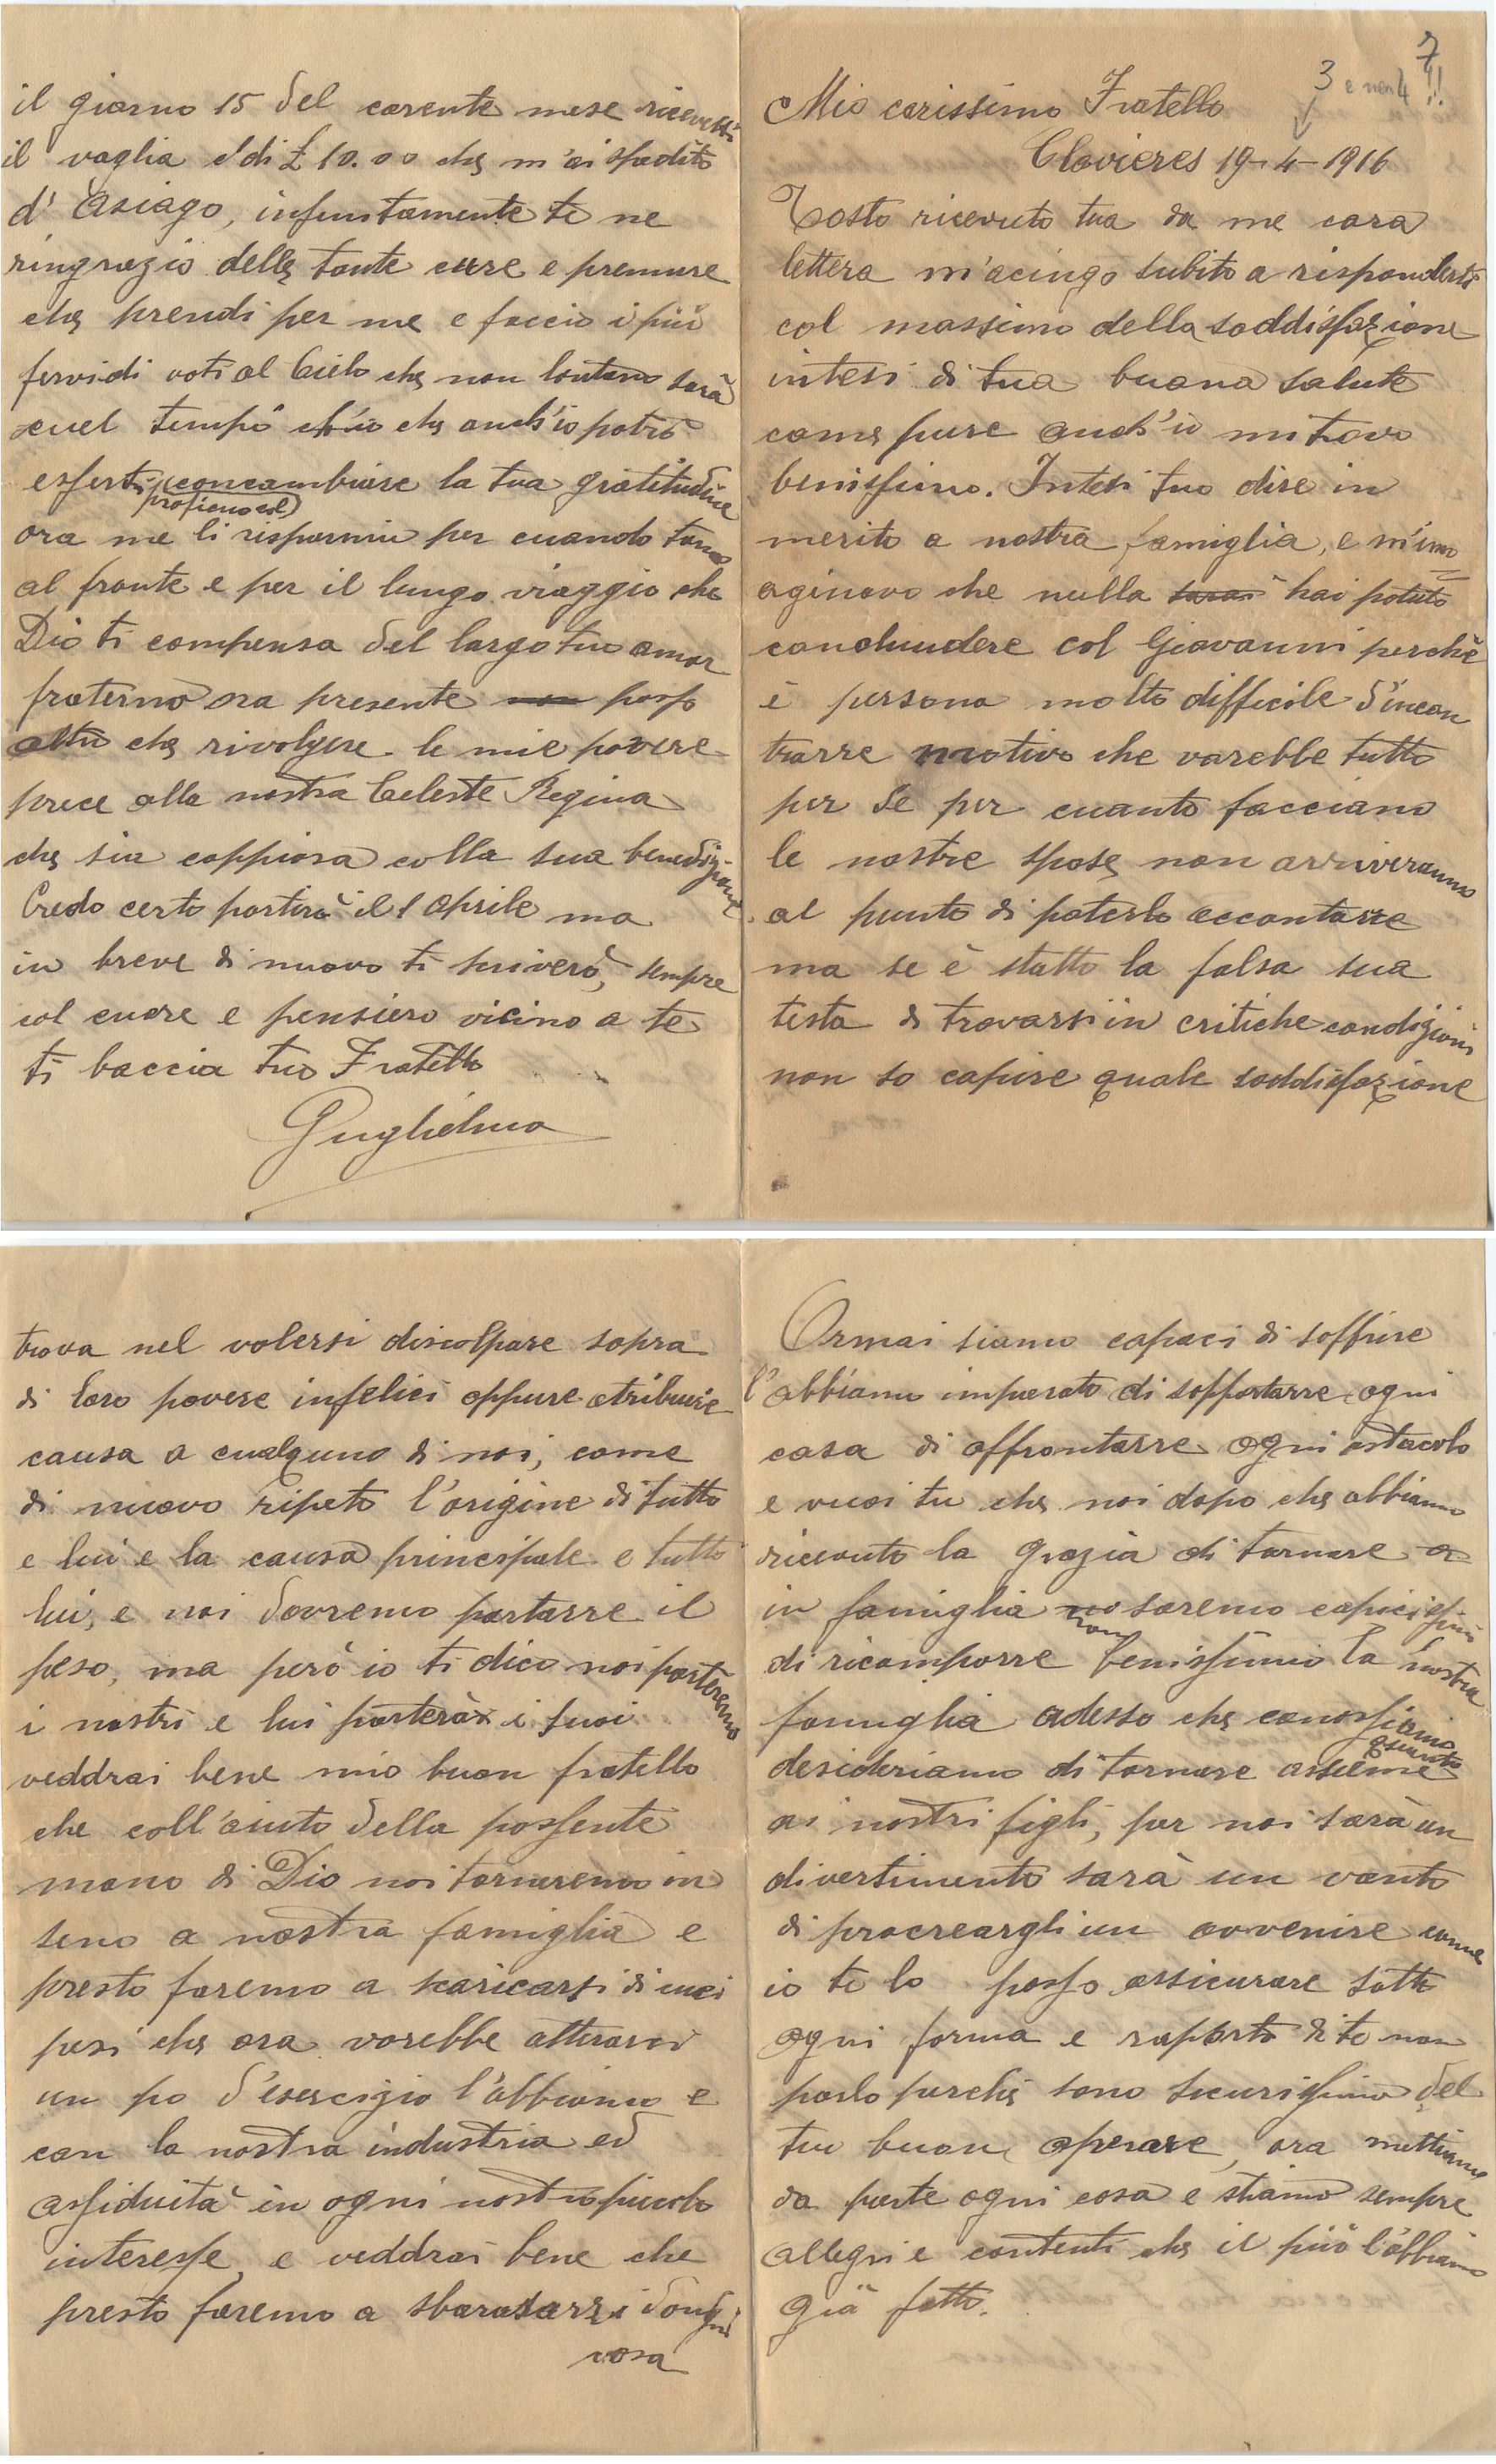 7
3 e non 4 !!
Mio carissimo Fratello
Clavieres 19-4-1916
Tosto ricevuto tua da me cara
lettera m'acingo subito a risponderti
col massimo della soddisfazione
intesi di tua buona salute
come pure anch'io mi trovo
benissimo. Intesi tuo dire in
merito a nostra famiglia, e m'im=
aginavo che nulla hai potuto
conchiudere col Giovanni perchè
è persona molto difficile d'incon
trarre motivo che varebbe tutto
per se per cuanto facciano
le nostre spose non arriveranno
al punto di poterlo accontarre
ma se è statto la falsa sua
testa di trovarsi in critiche condizioni
non so capire quale soddisfazione
trova nel volersi discolpare sopra
di loro povere infelici oppure atribuire
causa a cualquno di noi, come
di nuovo ripeto l'origine di tutto
e lui e la causa principale e tutto
lui, e noi dovremo portarre il
peso, ma però io ti dico noi porteremo
i nostri e lui porterà i suoi
veddrai bene mio buon fratello
che coll'aiuto della possente
mano di Dio noi torneremo in
seno a nostra famiglia e
presto faremo a scaricarsi di cuei
pesi che ora vorebbe atterarci
un po d'esercizio l'abbiamo e
con la nostra industria ed
assiduità in ogni nostro piccolo
interesse, e veddrai bene che
presto faremo a sbarasarzi d'ongni
cosa
Ormai siamo capaci di soffrire
l'abbiamo imparato di sopportarre ogni
cosa di affrontarre ogni ostacolo
e vuoi tu che noi dopo che abbiamo
ricevuto la grazia di tornare a
in famiglia non saremo capacissimi
di ricomporre benissimo la nostra
famiglia adesso che conossiamo
quanto
desideriamo di tornare assieme
ai nostri figli, per noi sarà un
divertimento sarà un vanto
di procreargli un avvenire come
io te lo posso assicurare sotto
ogni forma e raporto di te non
parlo perchè sono sicurissimo del
tuo buon operare, ora mettiamo
da parte ogni cosa e stiamo sempre
allegri e contenti che il più l'abbiamo
già fatto.
il giorno 15 del corente mese ricevetti
il vaglia di £ 10.00 che m'ai spedito
d'Asiago, infinitamente te ne
ringrazio delle tante cure e premure
che prendi per me e faccio i più
fervidi voti al Cielo che non lontano sarà
cuel tempo ch'io che anch'io potrò
esserti concambiare la tua gratitudine
proficuo col
ora me li risparmio per cuando torno
al fronte e per il lungo viaggio che
Dio ti compensa del largo tuo amor
fraterno ora presente non posso
altro che rivolgere le mie povere
prece alla nostra Celeste Regina
che sia coppiosa colla sua benedizione
Credo certo partirò il 1 aprile ma
in breve di nuovo ti scriverò, sempre
col cuore e pensiero vicino a te
ti baccia tuo Fratello
Guglielmo